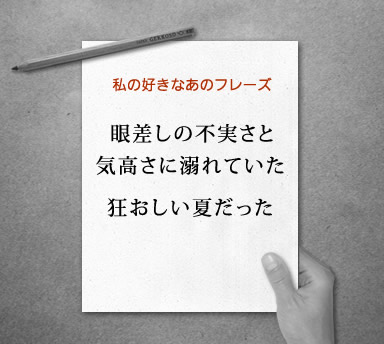 私の好きなあのフレーズ
眼差しの不実さと
気高さに溺れていた
狂おしい夏だった